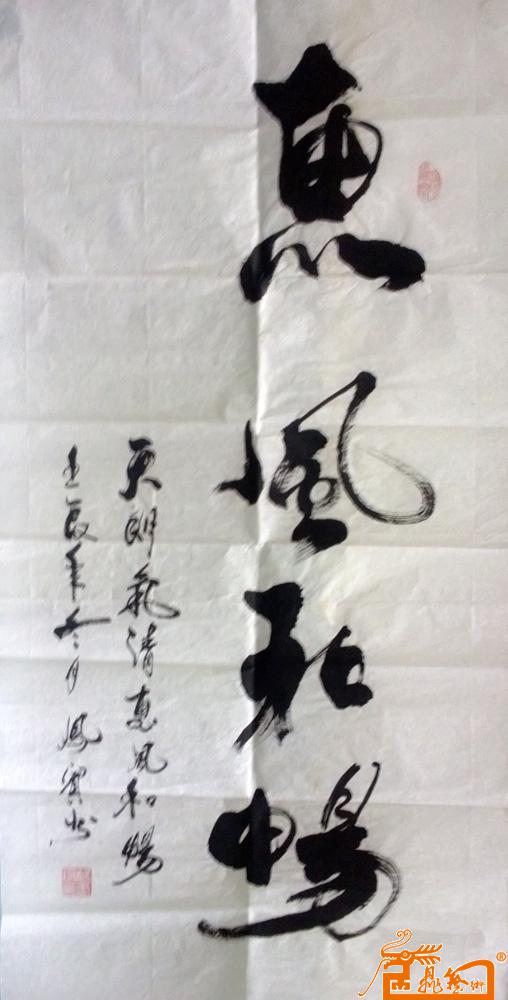 惠風和暢
天朗氣清惠風和暢
壬辰年冬月鳳賓書